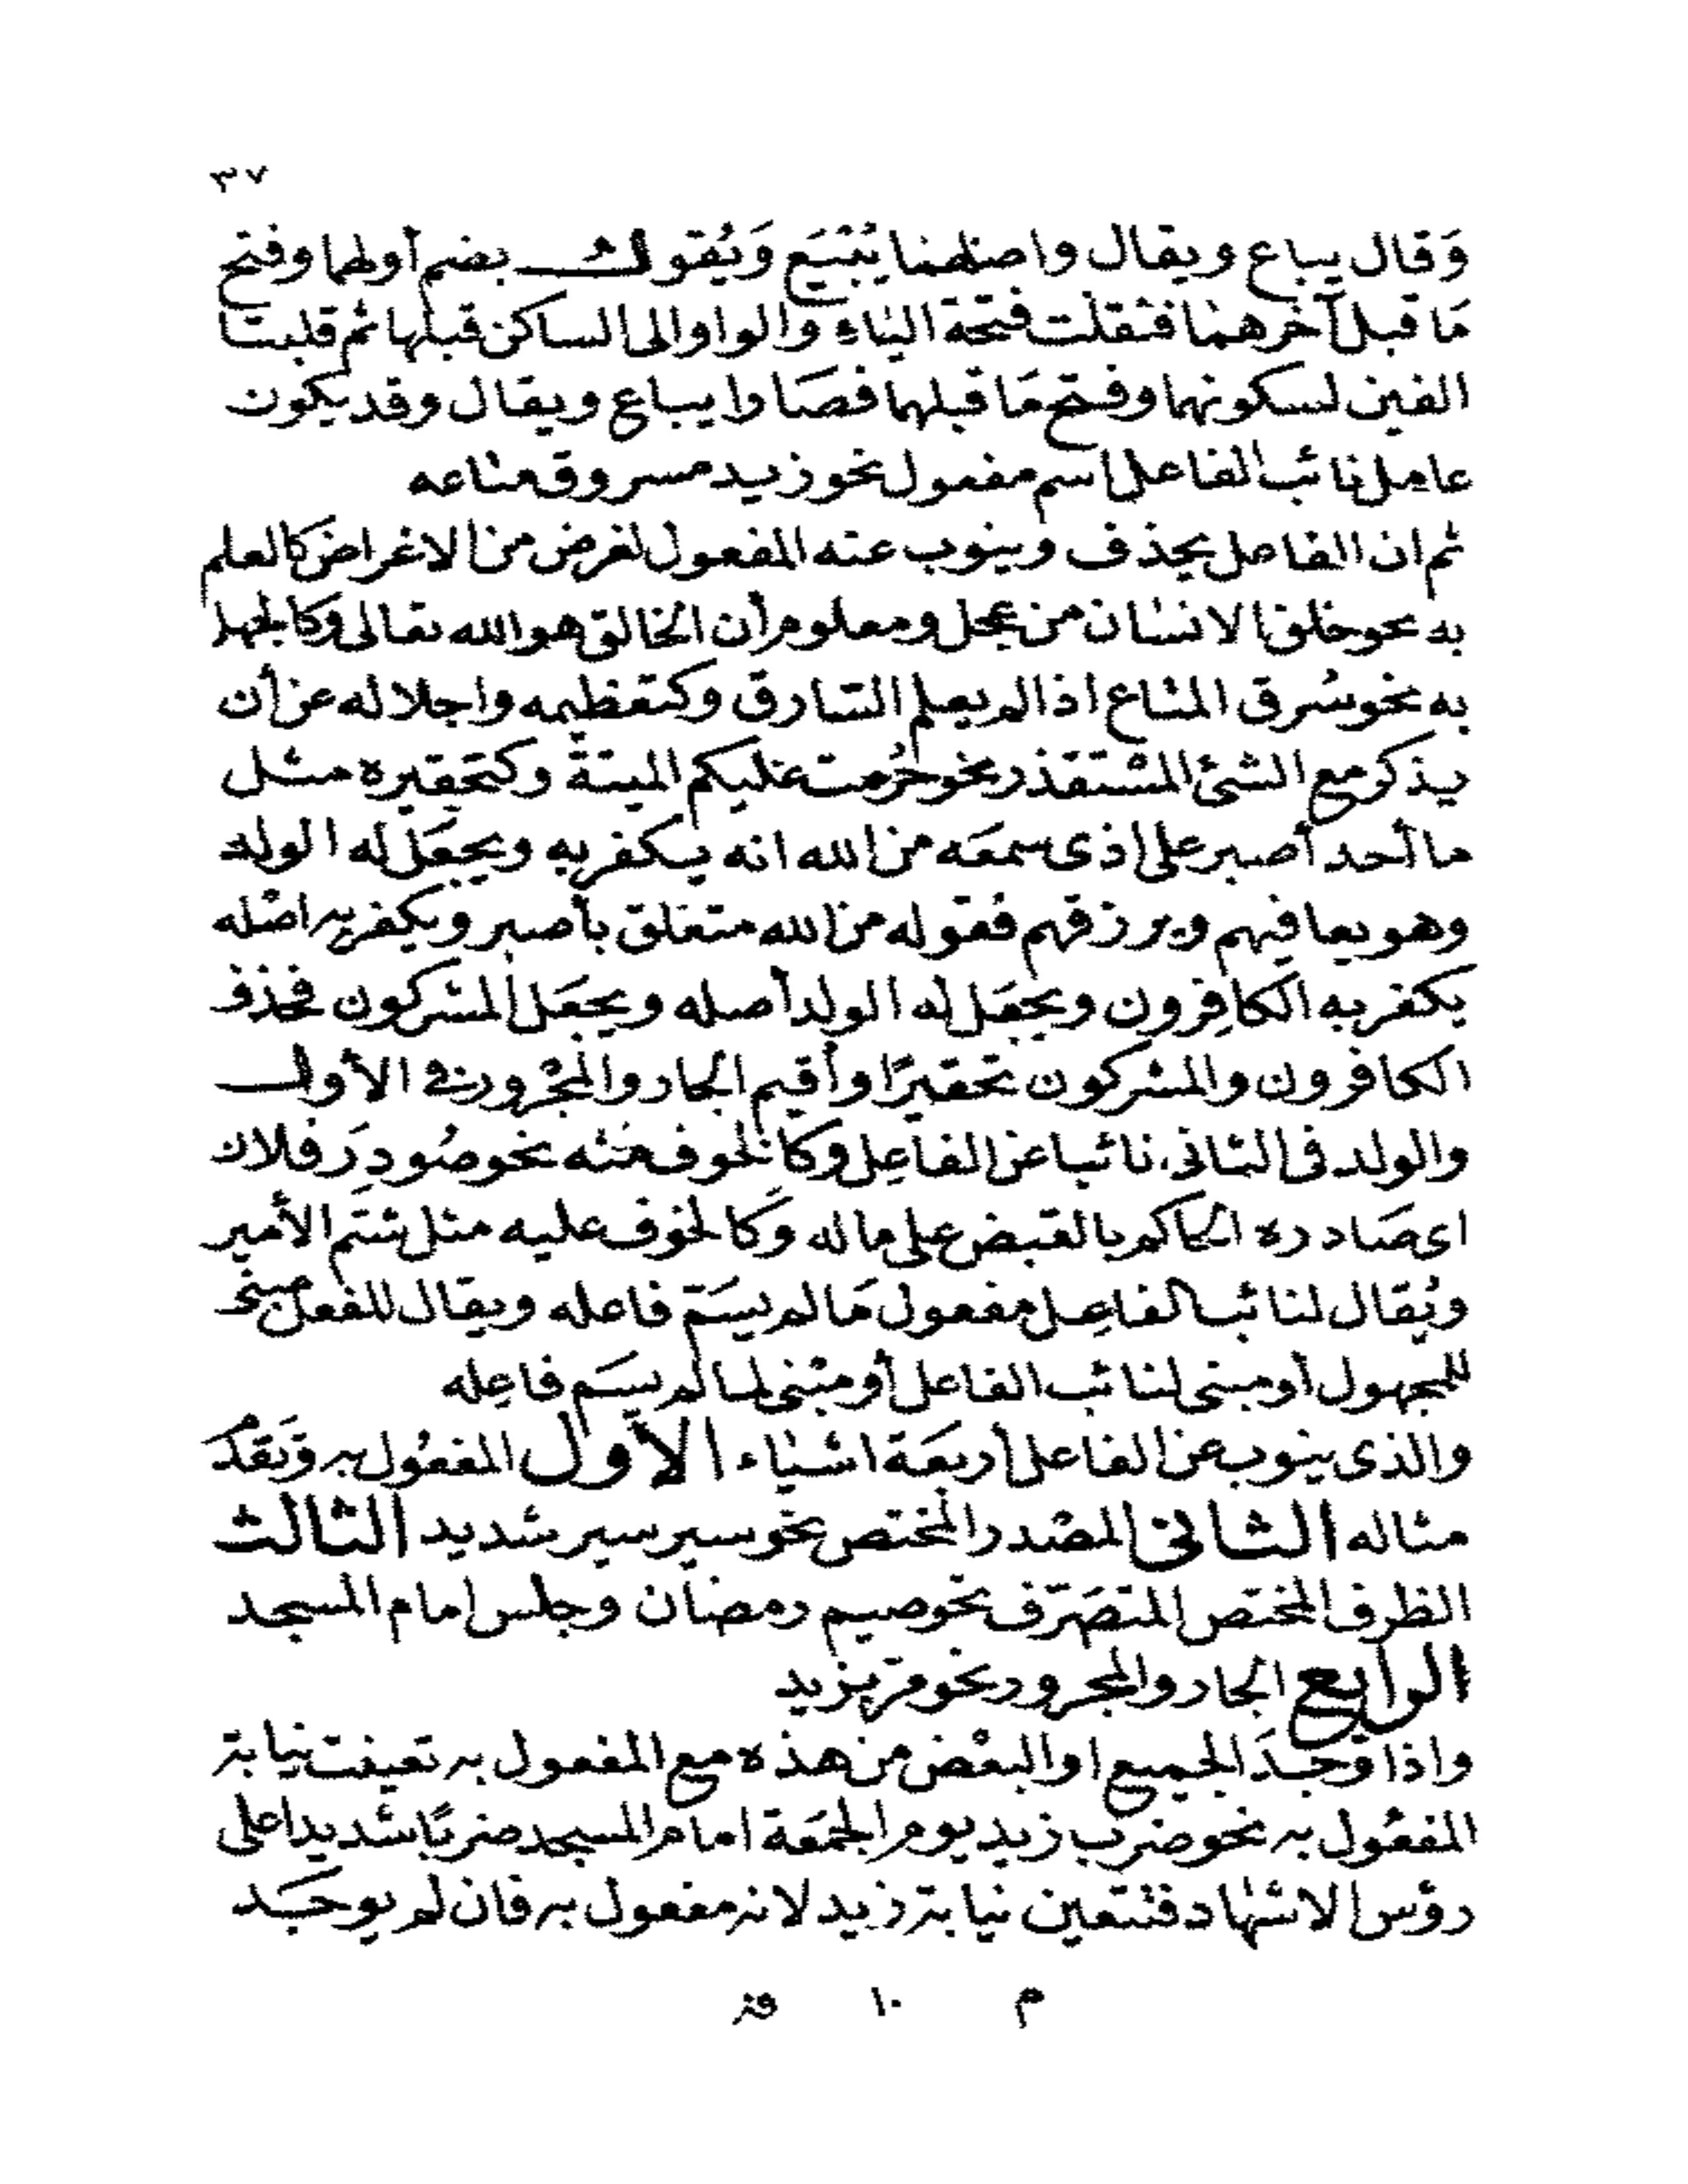 ٣٧
وَقال يباع ويقال واصلهما يُبْيَع وَيُقوَل بضم أولهما وفتح
مَا قبل آخرهما فنقلت فتحة الياء والواو الى الساكن قبلها ثم قلبتا
الفين لسكونهما وفتح مَا قبلهما فصَارا يباع ويقال وقد يكون
عامل نائب الفاعل اسم مفعول نحو زيد مسروق متاعه
ثم ان الفاعل يحذف وينوب عنه المفعول لغرض من الاغراض كالعلم
به نحو خلق الانسان من عجل ومعلوم أن الخالق هو الله تعالى وكالجهل
به نحو سُرق المتاع اذا لم يعلم السارق وكتعظيمه واجلاله عن أن
يذكر مع الشئ المستقذر نحو حُرّمت عليكم الميتة وكتحقيره مثل
ما أحد أصبر على اذى سمعَه من الله انه يكفر به ويجعَل له الولد
وهو يعافيهم ويرزقهم فقوله من الله متعلق بأصبر ويكفر به اصْله
يكفر به الكافِرون ويجعَل له الولد أصله ويجعَل المشركون فحذف
الكافرون والمشركون تحقيرًا وأقيم الجار والمجْرور في الأول
والولد فى الثانى نائبا عن الفاعِل وكالخوف منه نحو صُودِرَ فلان
اى صَادره الحاكم بالقبض على ماله وَكالخوف عليه مثل شتم الأمير
ويُقال لنائب الفاعِل مفعول مَا لم يسَمّ فاعله ويقال للفعل مبنى
للمجهول أو مبنى لنائب الفاعل أو مبْنى لما لم يسَم فاعِله
والذى ينوب عن الفاعل أربعَة اشياء الأول المفعُول به وَتقدم
مثاله الثانى المصْدر المختص نحو سير سير شديد الثالث
الظرف المختص المتصَرّف نحو صيم رمضان وجلس امام المسجد
الرابع الجار والمجرور نحو مرّ بزيد
واذا وُجِدَ الجميع او البعْض من هذه مع المفعول به تعينت نيابة
المفعُول به نحو ضرب زيد يوم الجمَعة امام المسجد ضربًا شديدا على
رؤس الاشهاد فتتعين نيابة زيد لانه مفعول به فان لم يوجَد
م ١٠